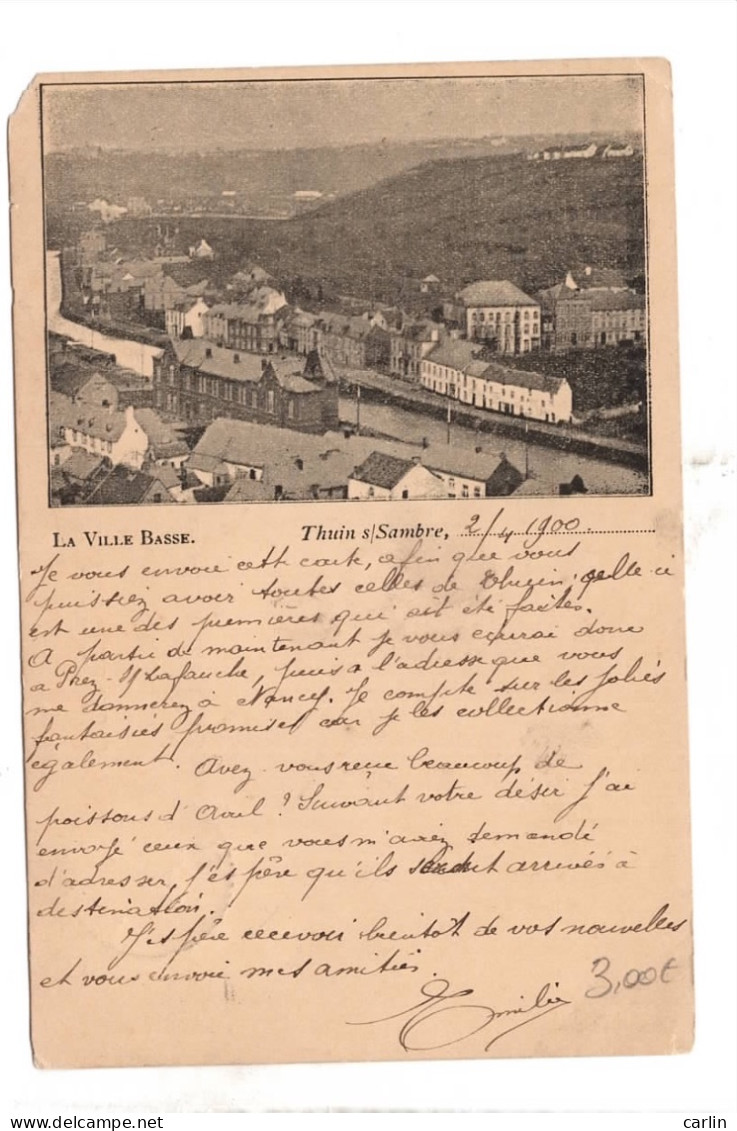 LA VILLE BASSE.
Thuin s/Sambre, 2/4 1900
Je vous envoie cette carte, afin que vous
puissiez avoir toutes celles de Thuin, celle-ci
est une des premières qui ait été faites.
A partir de maintenant je vous écrirai donc
à Prez-s/Lafauche, puis à l'adresse que vous
me donnerez à Nancy. Je compte sur les jolies
fantaisies promises car je les collectionne
également. Avez-vous reçu beaucoup de
poissons d'Avril? Suivant votre désir j'ai
envoyé ceux que vous m'aviez demandé
d'adresser, j'espère qu'ils sont arrivés à
destination.
J'espère recevoir bientôt de vos nouvelles
et vous envoie mes amitiés.
Emilie
3,00€
delcampe.net
carlin